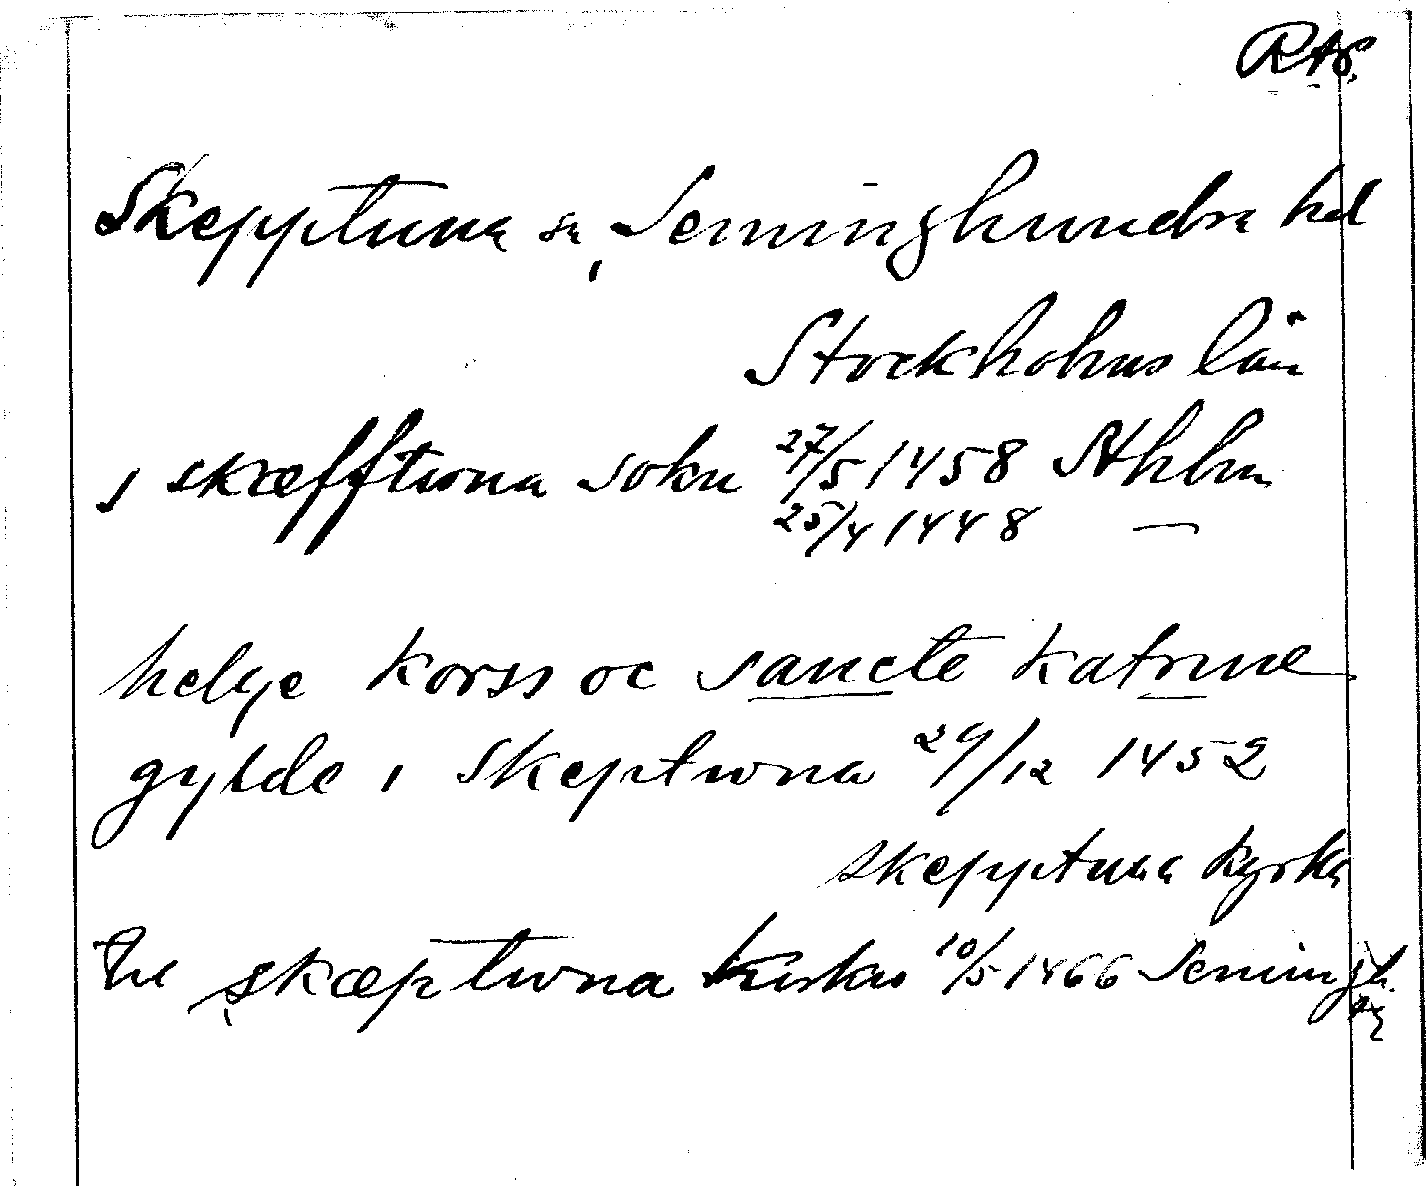 RAp.
Skepptuna sn, Seminghundra hd
Stockholms län
i skæfftwna sokn 27/5 1458 Sthlm
25/4 1448 —
helge korss oc sancte katrine
gylde i Skeptwna 29/12 1452
Skepptuna kyrka
til skæptwna kirkio 10/5 1466 Semingh.